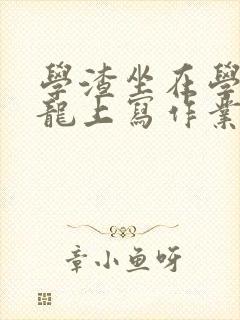 學渣坐在學
龍上寫作業
章小魚呀